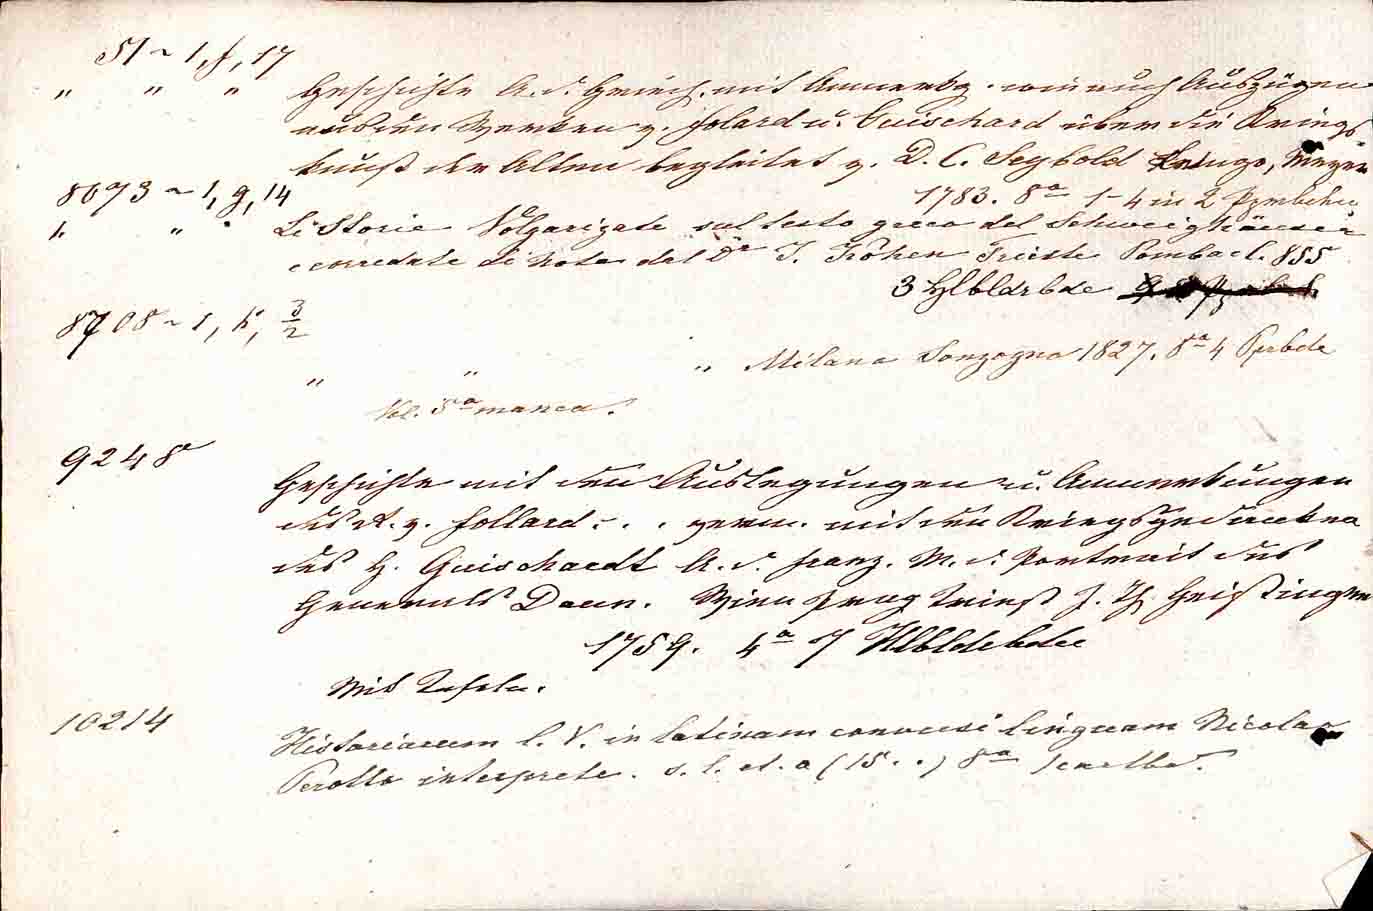 51 ~ 1, f, 17
" " " Geschichte A. d. Griech. mit Anmerkg. wie auch Auszügen
aus den Werken v. Folard u. Guischard über die Kriegs
kunst der Alten begleitet v. D. C. Seybold Lemgo, Meyer
1783. 8ª 1-4 in 2 Ppmbchn
8693 ~ 1, g, 14
" " " Le Storie Volgarizate sul testo greco del Schweighäuser
e corredate di note dal Dr I. Kohen Trieste Colombo C. 855
3 Hlbldrbde
8708 ~ 1, h, 3/2
" " " Milano Sonzogno 1827. 8ª 4 Pprbde
Vol. 5ª manca.
9248
Geschichte mit den Auslegungen u. Anmerkungen
des R. v. Follard . . . verm. mit den Kriegsgedanken
des H. Guischardt A. d. franz. M. d. Portrait des
Generals Daun. Wien Prag Triest J. Th. Geistinger
1759. 4ª 7 Hlbldrbde
Mit Tafeln.
10214
Historiarum l. V. in latinam conversi linguam Nicolao
Perotto interprete. s. l. et. a (15..) 8ª